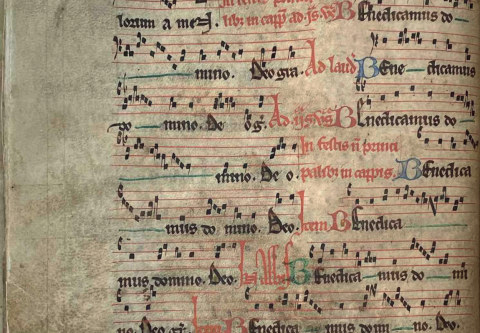 lorum a me
libr in capp ad Benedicamus do
mino. Deo gra. Ad laud Bene dicamus
do mino. De o g. Ad Benedicamus do
In festis n princi
mino. De o. palibꝰ in cappis. Benedica
mus do mino. Deo. Item Benedica
mus domino. Deo. Benedica mus do mi
no. Deo gr. Item Benedica mus domi no. Deo.